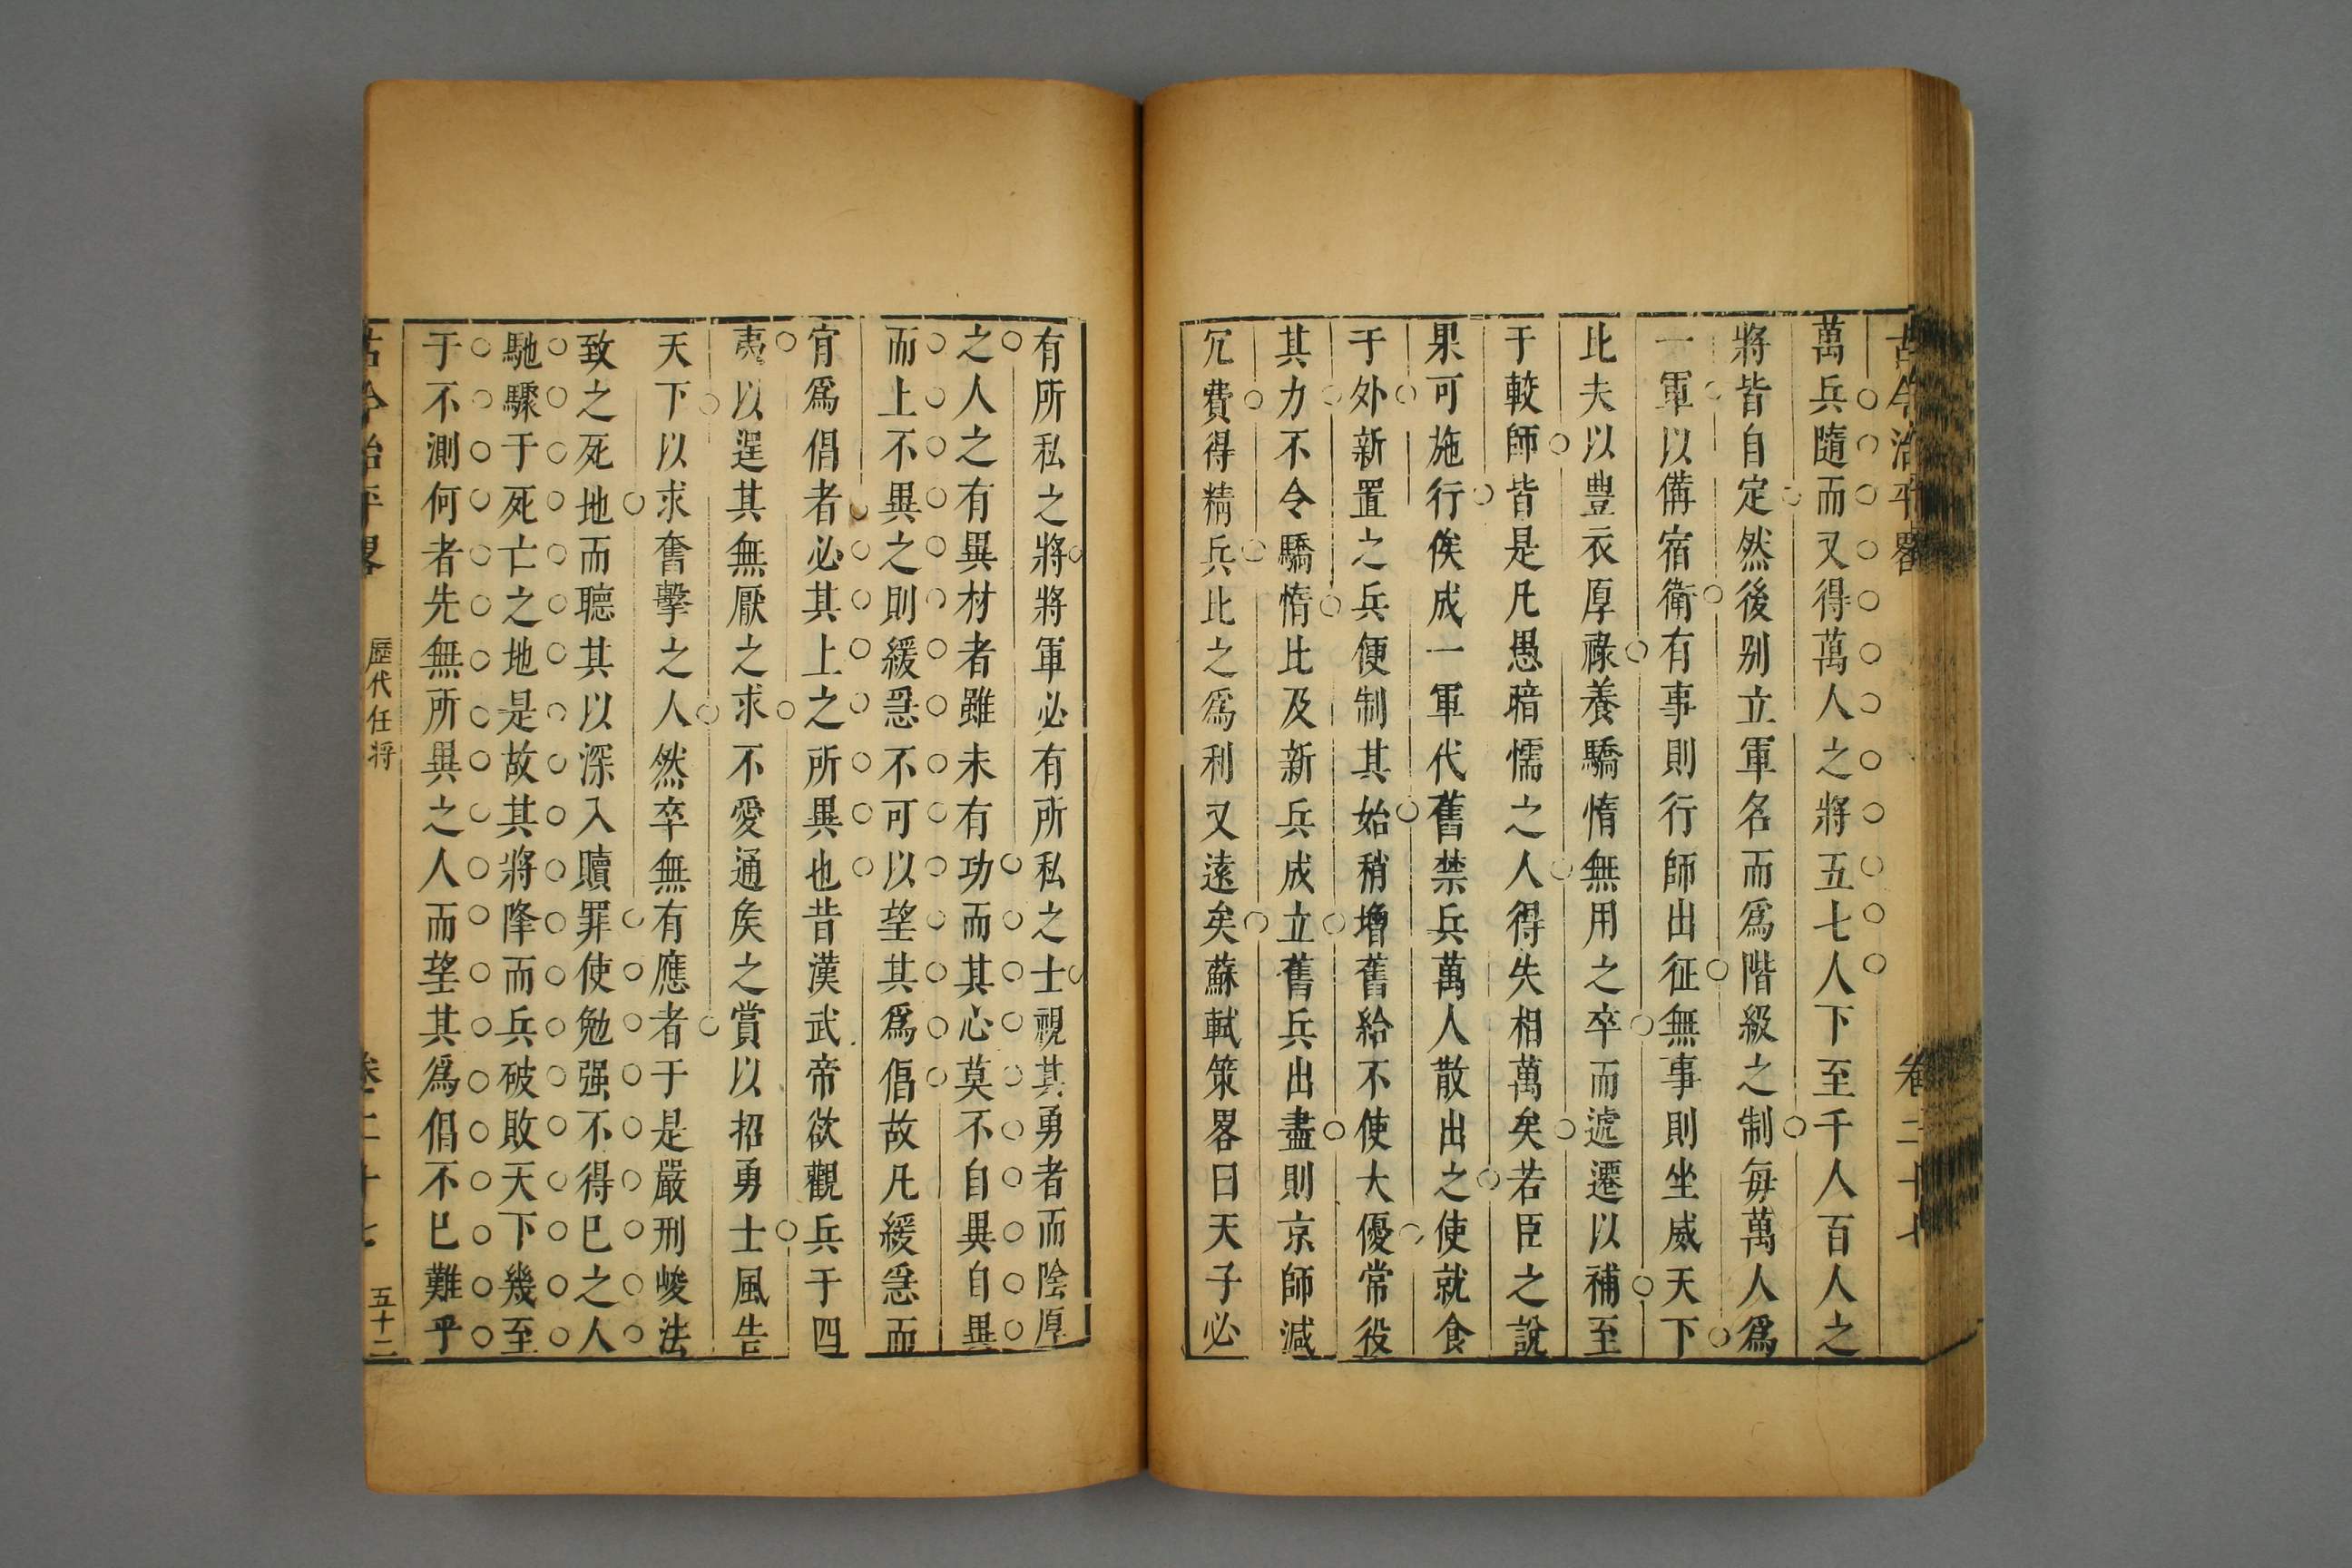 古今治平畧
卷二十七
萬兵隨而又得萬人之將五七人下至千人百人之
將皆自定然後别立軍名而爲階級之制每萬人爲
一軍以備宿衛有事則行師出征無事則坐威天下
比夫以豊衣厚祿養驕惰無用之卒而遞遷以補至
于較師皆是凡愚暗懦之人得失相萬矣若臣之說
果可施行俟成一軍代舊禁兵萬人散出之使就食
于外新置之兵便制其始稍增舊給不使大優常役
其力不令驕惰比及新兵成立舊兵出盡則京師減
冗費得精兵比之爲利又遠矣蘇軾策畧曰天子必
有所私之將將軍必有所私之士視其勇者而陰厚
之人之有異材者雖未有功而其心莫不自異自異
而上不異之則緩急不可以望其爲倡故凡緩急而
肎爲倡者必其上之所異也昔漢武帝欲觀兵于四
夷以逞其無厭之求不愛通矦之賞以招勇士風告
天下以求奮擊之人然卒無有應者于是嚴刑峻法
致之死地而聽其以深入贖罪使勉强不得已之人
馳驟于死亡之地是故其將降而兵破敗天下幾至
于不測何者先無所異之人而望其爲倡不已難乎
古今治平畧
歷代任將
卷二十七
五十二